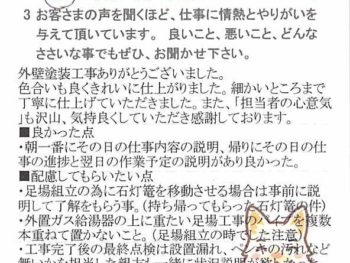 3 お客さまの声を聞くほど、仕事に情熱とやりがいを
与えて頂いています。 良いこと、悪いこと、どんな
ささいな事でもぜひ、お聞かせ下さい。
外壁塗装工事ありがとうございました。
色合いも良くきれいに仕上がりました。細かいところまで
丁寧に仕上げていただきました。また、「担当者の心意気
」も沢山、気持良くしていただき感謝しております。
■良かった点
・朝一番にその日の仕事内容の説明、帰りにその日の仕
事の進捗と翌日の作業予定の説明があり良かった。
■配慮してもらいたい点
・足場組立の為に石灯篭を移動させる場合は事前に説
明して了解をもらう事。(持ち帰ってもらった石灯篭の件)
・外置ガス給湯器の上に重たい足場工事の を複数
本重ねて置かないこと。(足場組立の時でした注意)
・工事完了後の最終点検は設置漏れ、ペンキの汚れなど